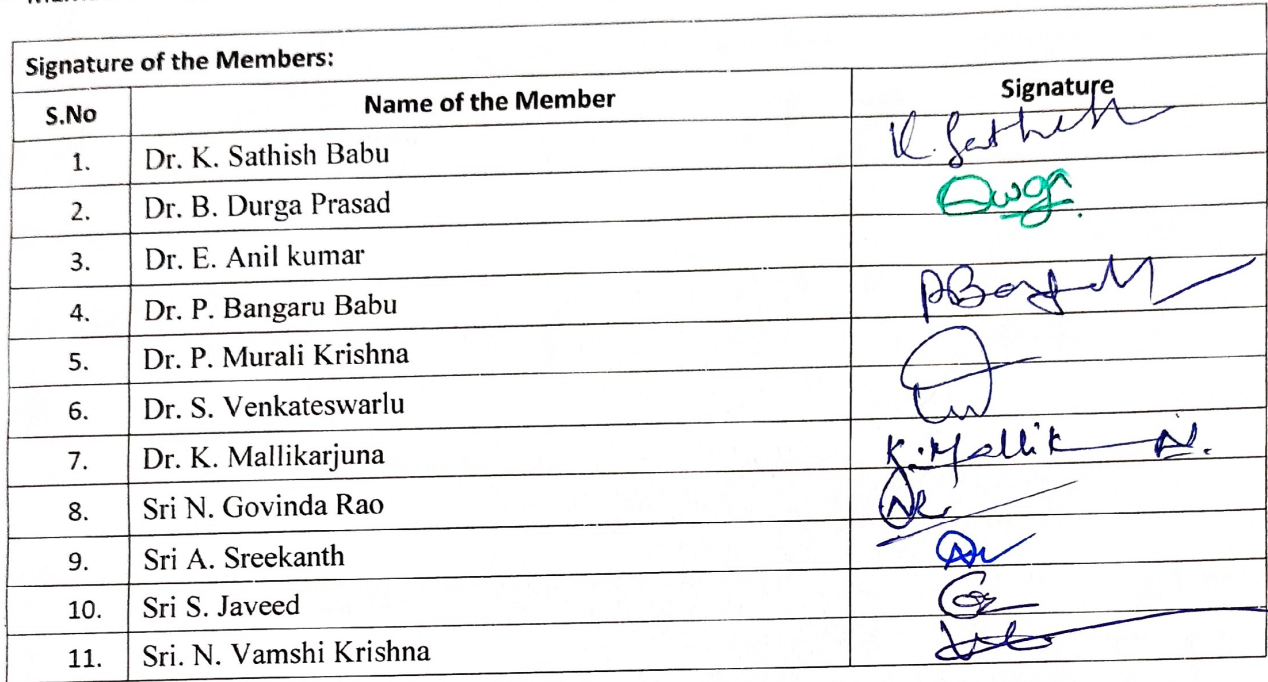 Signature of the Members:
S.No Name of the Member Signature
1. Dr. K. Sathish Babu K. Sathish
2. Dr. B. Durga Prasad Durga
3. Dr. E. Anil kumar
4. Dr. P. Bangaru Babu
5. Dr. P. Murali Krishna
6. Dr. S. Venkateswarlu
7. Dr. K. Mallikarjuna K. Mallik
8. Sri N. Govinda Rao
9. Sri A. Sreekanth
10. Sri S. Javeed
11. Sri. N. Vamshi Krishna